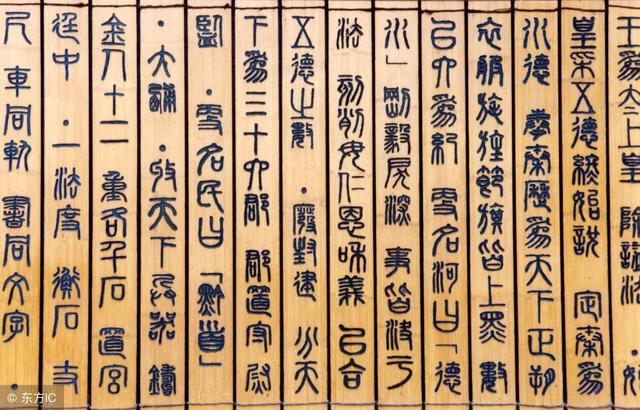 王爲太上皇 除諡法 ·始
皇采五德終始說 定秦爲
水德 奉秦歷爲天下正朔
衣服旄旌節旗皆上黑 數
以六爲紀 更名河曰「德
水」 剛毅戾深 事皆決于
法 刻削毋仁恩和義 以合
五德之數 ·廢封建 分天
下爲三十六郡 郡置守尉
監 ·更名民曰「黔首」
·大酺 ·收天下兵器 鑄
金人十二 重各千石 置宮
廷中 ·一法度 衡石 丈
尺 車同軌 書同文字 ·
© 东方IC